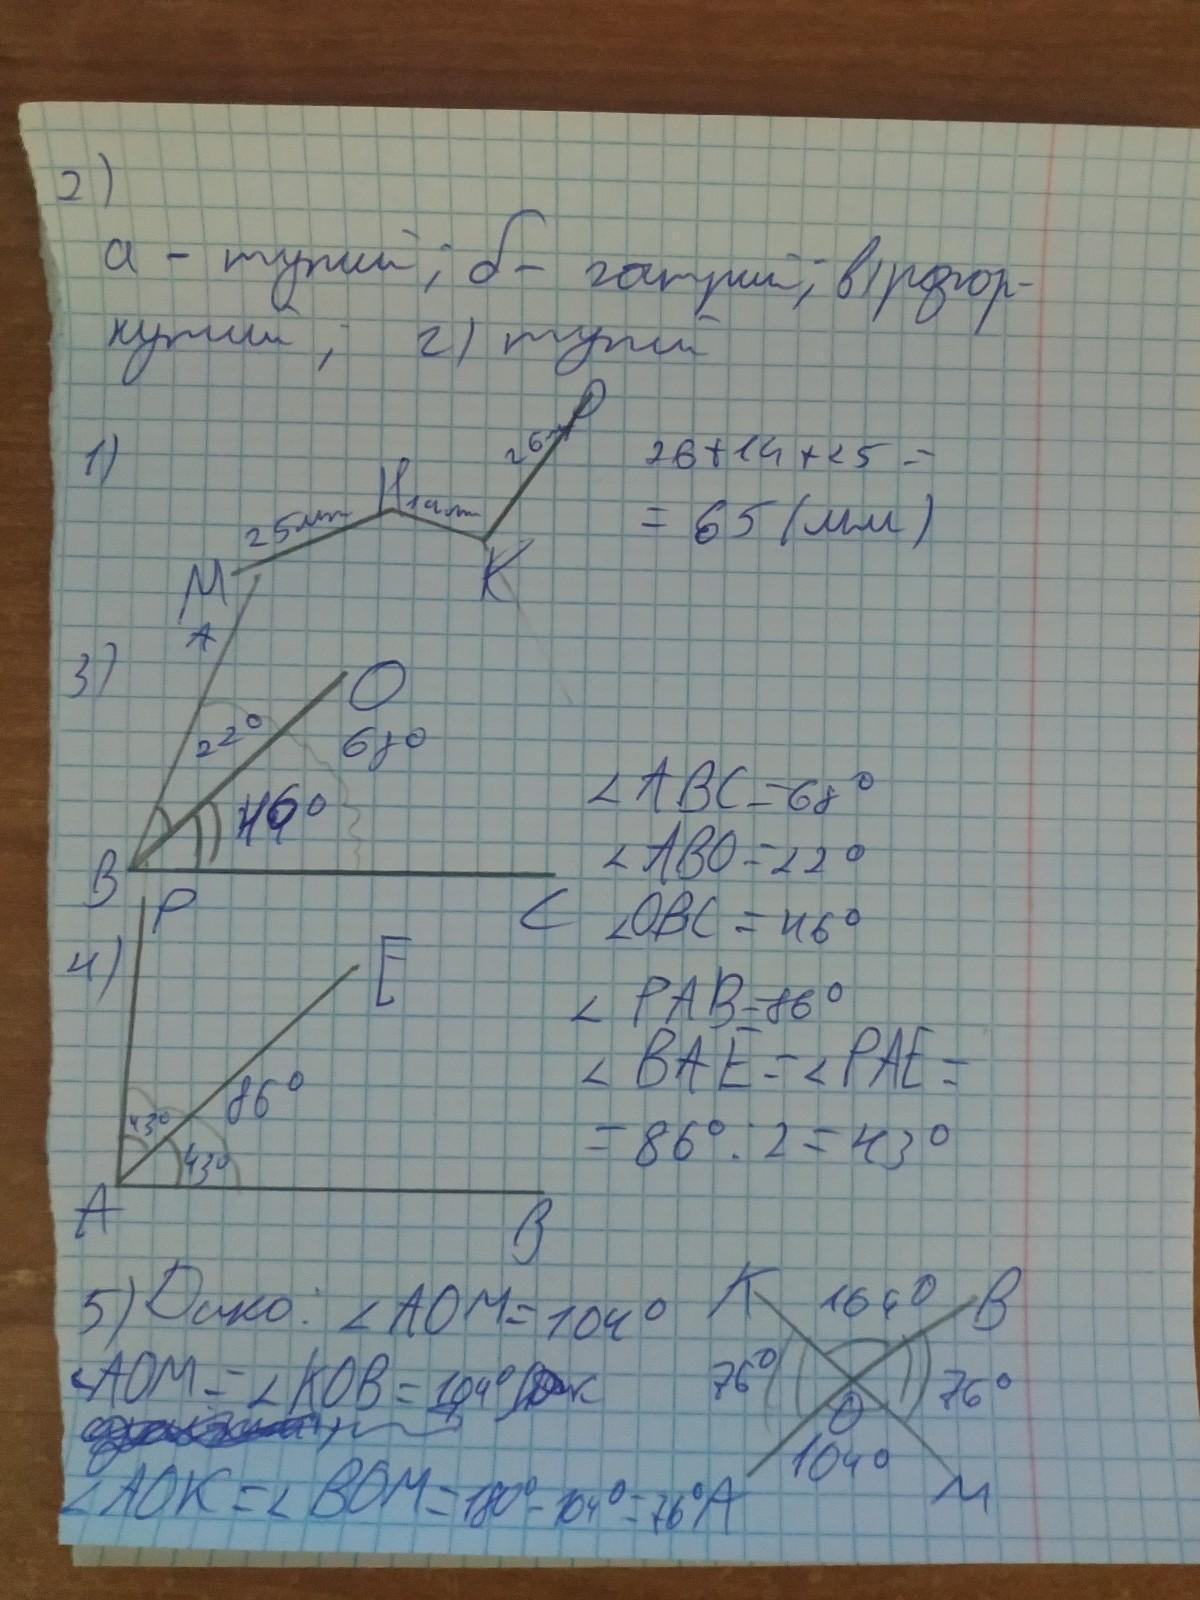 2)
а - тупий; б - гострий; в) розгор-
нутий; г) тупий
1)
M
25мм
H
14мм
K
26мм
P
26+14+25=
=65(мм)
3)
A
O
22°
68°
46°
B
C
∠ABC=68°
∠ABO=22°
∠OBC=46°
4)
P
E
86°
43°
43°
A
B
∠PAB=86°
∠BAE=∠PAE=
=86°:2=43°
5) Дано: ∠AOM=104°
∠AOM=∠KOB=104°
∠AOK=∠BOM=180°-104°=76°
K
104°
B
76°
76°
O
104°
A
M